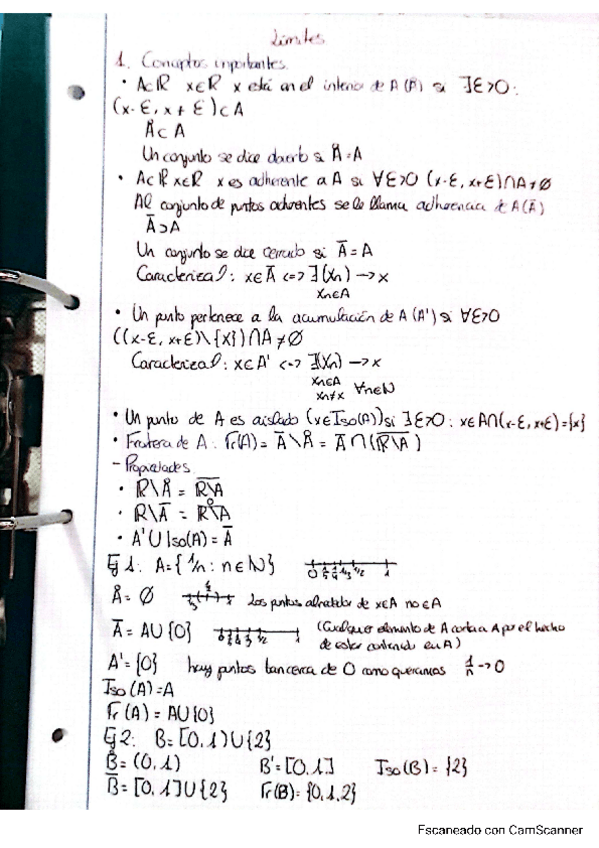 Límites
1. Conceptos importantes.
• A⊂ℝ x∈ℝ x está en el interior de A (Å) si ∃ε>0:
(x-ε, x+ε)⊂A
Å⊂A
Un conjunto se dice abierto si Å=A
• A⊂ℝ x∈ℝ x es adherente a A si ∀ε>0 (x-ε, x+ε)∩A≠∅
Al conjunto de puntos adherentes se le llama adherencia de A (Ā)
Ā⊃A
Un conjunto se dice cerrado si Ā=A
Caracterizaº: x∈Ā <=> ∃(xn)→x
xn∈A
• Un punto pertenece a la acumulación de A (A') si ∀ε>0
((x-ε, x+ε)\{x})∩A≠∅
Caracterizaº: x∈A' <=> ∃(xn)→x
xn∈A
xn≠x ∀n∈ℕ
• Un punto de A es aislado (x∈Iso(A)) si ∃ε>0: x∈A∩(x-ε, x+ε)={x}
• Frontera de A: Fr(A)= Ā\Å = Ā∩(ℝ\A)
- Propiedades
• ℝ\Å = ℝ\A
• ℝ\Ā = ℝ\A
• A'∪Iso(A)=Ā
Ej 1: A={1/n: n∈ℕ} 0 1/5 1/4 1/3 1/2 1
Å=∅ Los puntos alrededor de x∈A no∈A
Ā=A∪{0} (Cualquier elemento de A corta a A por el hecho
de estar contenido en A)
A'={0} hay puntos tan cerca de 0 como queramos 1/n→0
Iso(A)=A
Fr(A)=A∪{0}
Ej 2: B=[0,1)∪{2}
B̊=(0,1) B'=[0,1] Iso(B)={2}
B̄=[0,1]∪{2} Fr(B)={0,1,2}
Escaneado con CamScanner